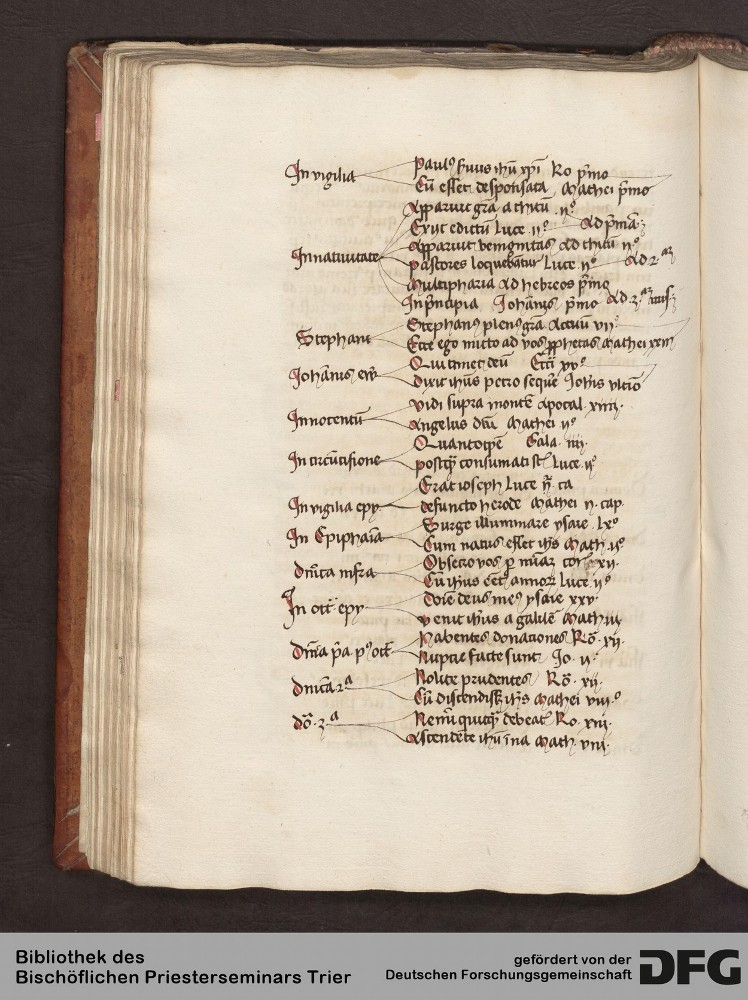 In vigilia
Paulꝯ ẜuus ihū xpī Ro pͥmo
Cū esset desponsata Mathei pͥmo
In natiuitate
Apparuit grā ad thitū iiº
Exijt edictū Luce iiº Ad pͥmā
Apparuit benignitas Ad thitū iiº
pastores loquebātur Luce iiº Ad 2ᵃᵐ
Multipharia Ad hebreos pͥmo
In pͥncipio Johānis pͥmo Ad 3ᵃᵐ
Stephani
Stephanꝯ plenꝯ grā Actuū vijº
Ecce ego mitto ad vos ꝓphetas Mathei xxiij
Johānis
Qui timet deū Ecci xvº
dixit ihūs petro sequē Johīs vltiō
Innocentū
vidi supra montē Apocal. xiiij.
Angelus dnī Mathei iiº
In circūcisione
Quantotpē Gala. iiij.
postqᷓ consumati st Luce iiº
In vigilia epy
Erat ioseph Luce ij ca
defuncto herode Mathei ij. cap.
In Epiphaīa
Surge illuminare ysaie lxº
Cum natus esset ihs Math. iiº
dnīca infra
Obsecro vos p mīaz xij.
Cū ihūs eēt annorꝝ Luce iiº
In oct epy
dōie deus meꝯ ysaie xxv.
venit ihūs a galilē Math iij
dnīca pͥa pꝰ oct
habentes donationes Rō. xij.
Nuptie facte sunt Jo. ijº
dnīca 2ᵃ
Nolite prudentes Rō. xij.
Cū discendissꝫ ihs Mathei viijº
dō. 3ᵃ
Nemī quicqᷓ debeat Ro. xiij.
Ascendēte ihū ī na Math. viij.
Bibliothek des
Bischöflichen Priesterseminars Trier
gefördert von der
Deutschen Forschungsgemeinschaft
DFG